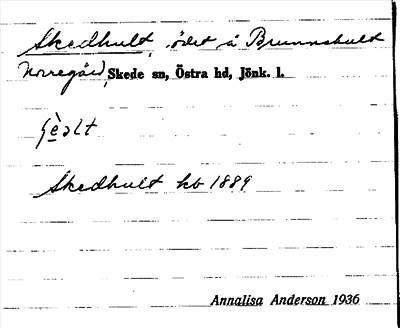 Skedhult, ödet å Brunnshult
Norregård, Skede sn, Östra hd, Jönk. l.
Skedhult kb 1889
Annalisa Anderson 1936